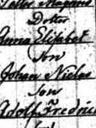 Dotter
Anna Elisabet
Son
Johan Niclas
Son
Adolf Fredric